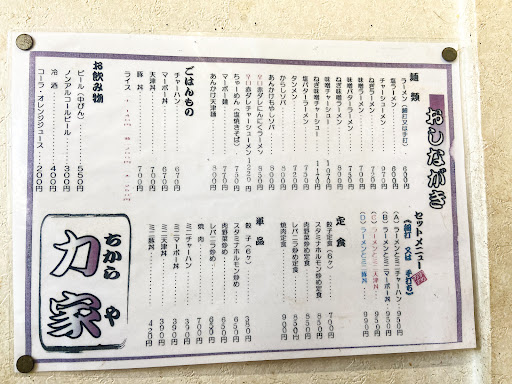 おしながき
麺類
ラーメン(細打又は手打)・・・600円
塩ラーメン・・・600円
チャーシューメン・・・970円
ねぎラーメン・・・720円
味噌ラーメン・・・700円
味噌バターラーメン・・・750円
ねぎ味噌ラーメン・・・800円
味噌チャーシュー
ねぎ味噌チャーシュー
塩バターラーメン
タンメン
からしソバ
あんかけもやしソバ・・・800円
辛口赤ダレにんにくラーメン・・・850円
辛口赤ダレチャーシューメン・・・1220円
ちゃーめん(塩焼きそば)
マーボー麺
あんかけ天津麺・・・800円
ごはんもの
チャーハン・・・670円
マーボー丼・・・670円
天津丼・・・700円
豚丼・・・700円
ライス
お飲み物
ビール(中びん)・・・550円
ノンアルコールビール・・・300円
冷酒・・・400円
コーラ・オレンジジュース・・・200円
セットメニュー
(細打又は手打ち)
(A)ラーメンとミニチャーハン・・・950円
(B)ラーメンとミニマーボー丼・・・950円
(C)ラーメンとミニ天津丼・・・950円
(D)ラーメンとミニ豚丼・・・950円
定食
餃子定食(6ヶ)・・・700円
スタミナホルモン炒め定食・・・850円
肉野菜炒め定食・・・850円
レバニラ炒め定食・・・850円
焼肉定食・・・900円
単品
餃子(6ヶ)・・・380円
スタミナホルモン炒め・・・650円
肉野菜炒め・・・650円
レバニラ炒め・・・650円
焼肉・・・700円
ミニチャーハン・・・390円
ミニマーボー丼・・・390円
ミニ天津丼・・・390円
ミニ豚丼・・・420円
ちからや
力家